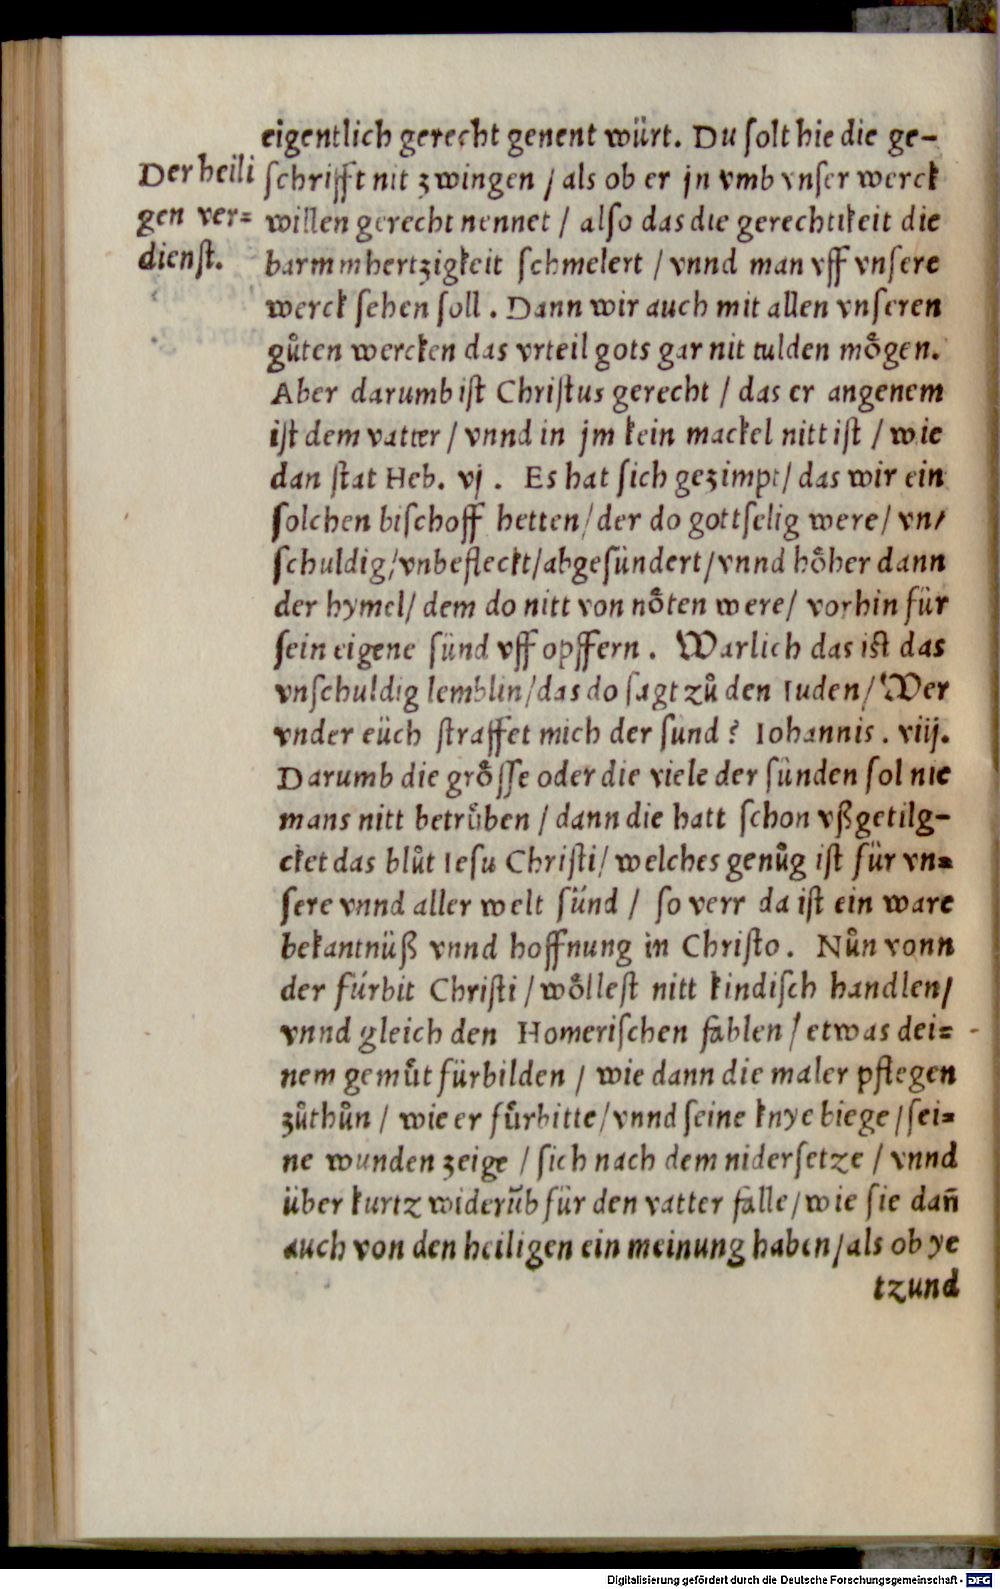 Der heili
gen ver=
dienſt.
eigentlich gerecht genent würt. Du ſolt hie die ge-
ſchrifft nit zwingen / als ob er jn vmb vnſer werck
willen gerecht nennet / alſo das die gerechtikeit die
barmmhertzigkeit ſchmelert / vnnd man vff vnſere
werck ſehen ſoll. Dann wir auch mit allen vnſeren
gůten wercken das vrteil gots gar nit tulden mo̊gen.
Aber darumb iſt Chriſtus gerecht / das er angenem
iſt dem vatter / vnnd in jm kein mackel nitt iſt / wie
dan ſtat Heb. vj. Es hat ſich gezimpt / das wir ein
ſolchen biſchoff hetten / der do gottſelig were / vn/
ſchuldig / vnbefleckt / abgeſündert / vnnd ho̊her dann
der hymel / dem do nitt von no̊ten were / vorhin für
ſein eigene ſünd vff opffern. Warlich das iſt das
vnſchuldig lemblin / das do ſagt zů den Iuden / Wer
vnder eüch ſtraffet mich der ſund? Iohannis. viij.
Darumb die gro̊ſſe oder die viele der ſünden ſol nie
mans nitt betrůben / dann die hatt ſchon vßgetilg-
cket das blůt Ieſu Chriſti / welches genůg iſt für vn=
ſere vnnd aller welt ſünd / ſo verr da iſt ein ware
bekantnüß vnnd hoffnung in Chriſto. Nůn vonn
der fürbit Chriſti / wo̊lleſt nitt kindiſch handlen /
vnnd gleich den Homeriſchen fablen / etwas dei=
nem gemůt fürbilden / wie dann die maler pflegen
zůthůn / wie er fůrbitte / vnnd ſeine knye biege / ſei=
ne wunden zeige / ſich nach dem niderſetze / vnnd
über kurtz widerūb für den vatter falle / wie ſie dañ
auch von den heiligen ein meinung haben / als ob ye
tzund
Digitalisierung gefördert durch die Deutsche Forschungsgemeinschaft - DFG